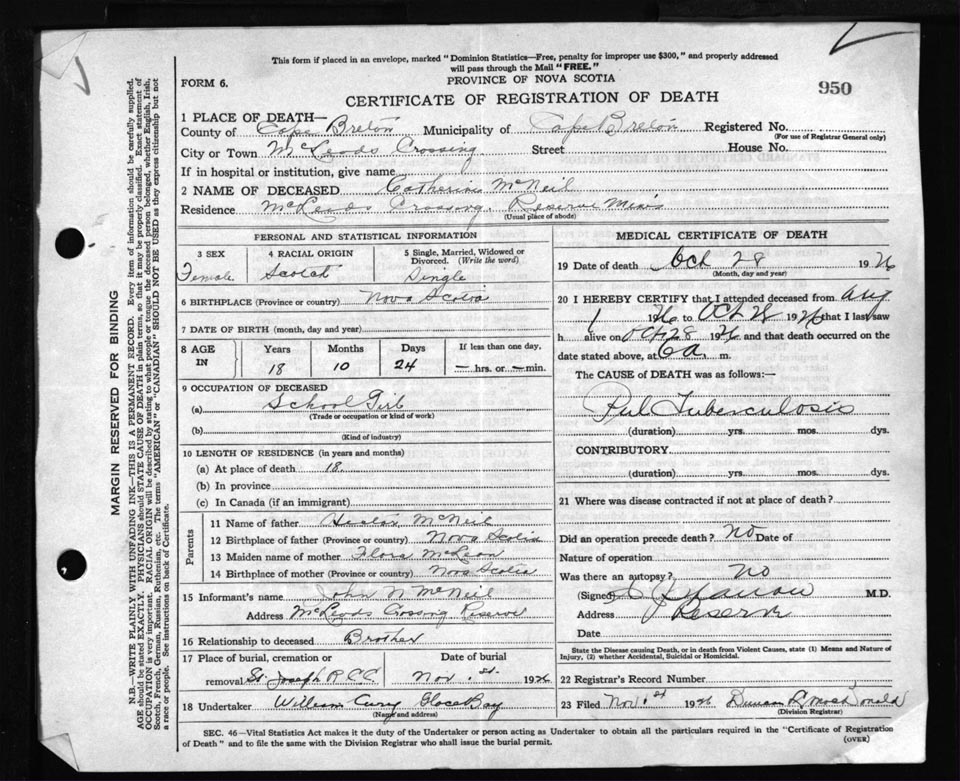 This form if placed in an envelope, marked "Dominion Statistics—Free, penalty for improper use $300," and properly addressed
will pass through the Mail "FREE."
FORM 6.
PROVINCE OF NOVA SCOTIA
950
CERTIFICATE OF REGISTRATION OF DEATH
1 PLACE OF DEATH—
County of Cape Breton Municipality of Cape Breton Registered No.
(For use of Registrar General only)
City or Town McLeods Crossing Street House No.
If in hospital or institution, give name
2 NAME OF DECEASED Catherine McNeil
Residence McLeods Crossing, Reserve Mines
(Usual place of abode)
PERSONAL AND STATISTICAL INFORMATION
3 SEX 4 RACIAL ORIGIN 5 Single, Married, Widowed or
Divorced. (Write the word)
Female Scotch Single
6 BIRTHPLACE (Province or country) Nova Scotia
7 DATE OF BIRTH (month, day and year)
8 AGE IN Years Months Days If less than one day,
18 10 24 — hrs. or — min.
9 OCCUPATION OF DECEASED
(a) School Girl
(Trade or occupation or kind of work)
(b)
(Kind of industry)
10 LENGTH OF RESIDENCE (in years and months)
(a) At place of death 18
(b) In province
(c) In Canada (if an immigrant)
Parents
11 Name of father McNeil
12 Birthplace of father (Province or country) Nova Scotia
13 Maiden name of mother Flora McLean
14 Birthplace of mother (Province or country) Nova Scotia
15 Informant's name John N McNeil
Address McLeods Crossing Reserve
16 Relationship to deceased Brother
17 Place of burial, cremation or Date of burial
removal St. Joseph R.C.C. Nov. 1st. 1926
18 Undertaker William Curry Glace Bay
(Name and address)
MEDICAL CERTIFICATE OF DEATH
19 Date of death Oct 28 1926
(Month, day and year)
20 I HEREBY CERTIFY that I attended deceased from Aug
1 1926 to Oct 28 1926 that I last saw
h alive on Oct 28 1926 and that death occurred on the
date stated above, at 6 a m.
The CAUSE of DEATH was as follows:—
Pul Tuberculosis
(duration) yrs. mos. dys.
CONTRIBUTORY
(duration) yrs. mos. dys.
21 Where was disease contracted if not at place of death?
Did an operation precede death? No Date of
Nature of operation
Was there an autopsy? No
(Signed) M.D.
Address Reserve
Date
State the Disease causing Death, or in death from Violent Causes, state (1) Means and Nature of
Injury, (2) whether Accidental, Suicidal or Homicidal.
22 Registrar's Record Number
23 Filed Nov. 1st 1926 Duncan R. MacDonald
(Division Registrar)
SEC. 46—Vital Statistics Act makes it the duty of the Undertaker or person acting as Undertaker to obtain all the particulars required in the "Certificate of Registration
of Death" and to file the same with the Division Registrar who shall issue the burial permit.
(OVER)
MARGIN RESERVED FOR BINDING
N.B.—WRITE PLAINLY WITH UNFADING INK—THIS IS A PERMANENT RECORD. Every item of information should be carefully supplied.
AGE should be stated EXACTLY. PHYSICIANS should STATE CAUSE OF DEATH in plain terms, so that it may be properly classified. Exact statement of
OCCUPATION is very important. RACIAL ORIGIN will be described by stating to what people or tongue the deceased person belonged, whether English, Irish,
Scotch, French, German, Russian, Ruthenian, etc. The terms "AMERICAN" or "CANADIAN" SHOULD NOT BE USED as they express citizenship but not
a race or people. See instructions on back of Certificate.